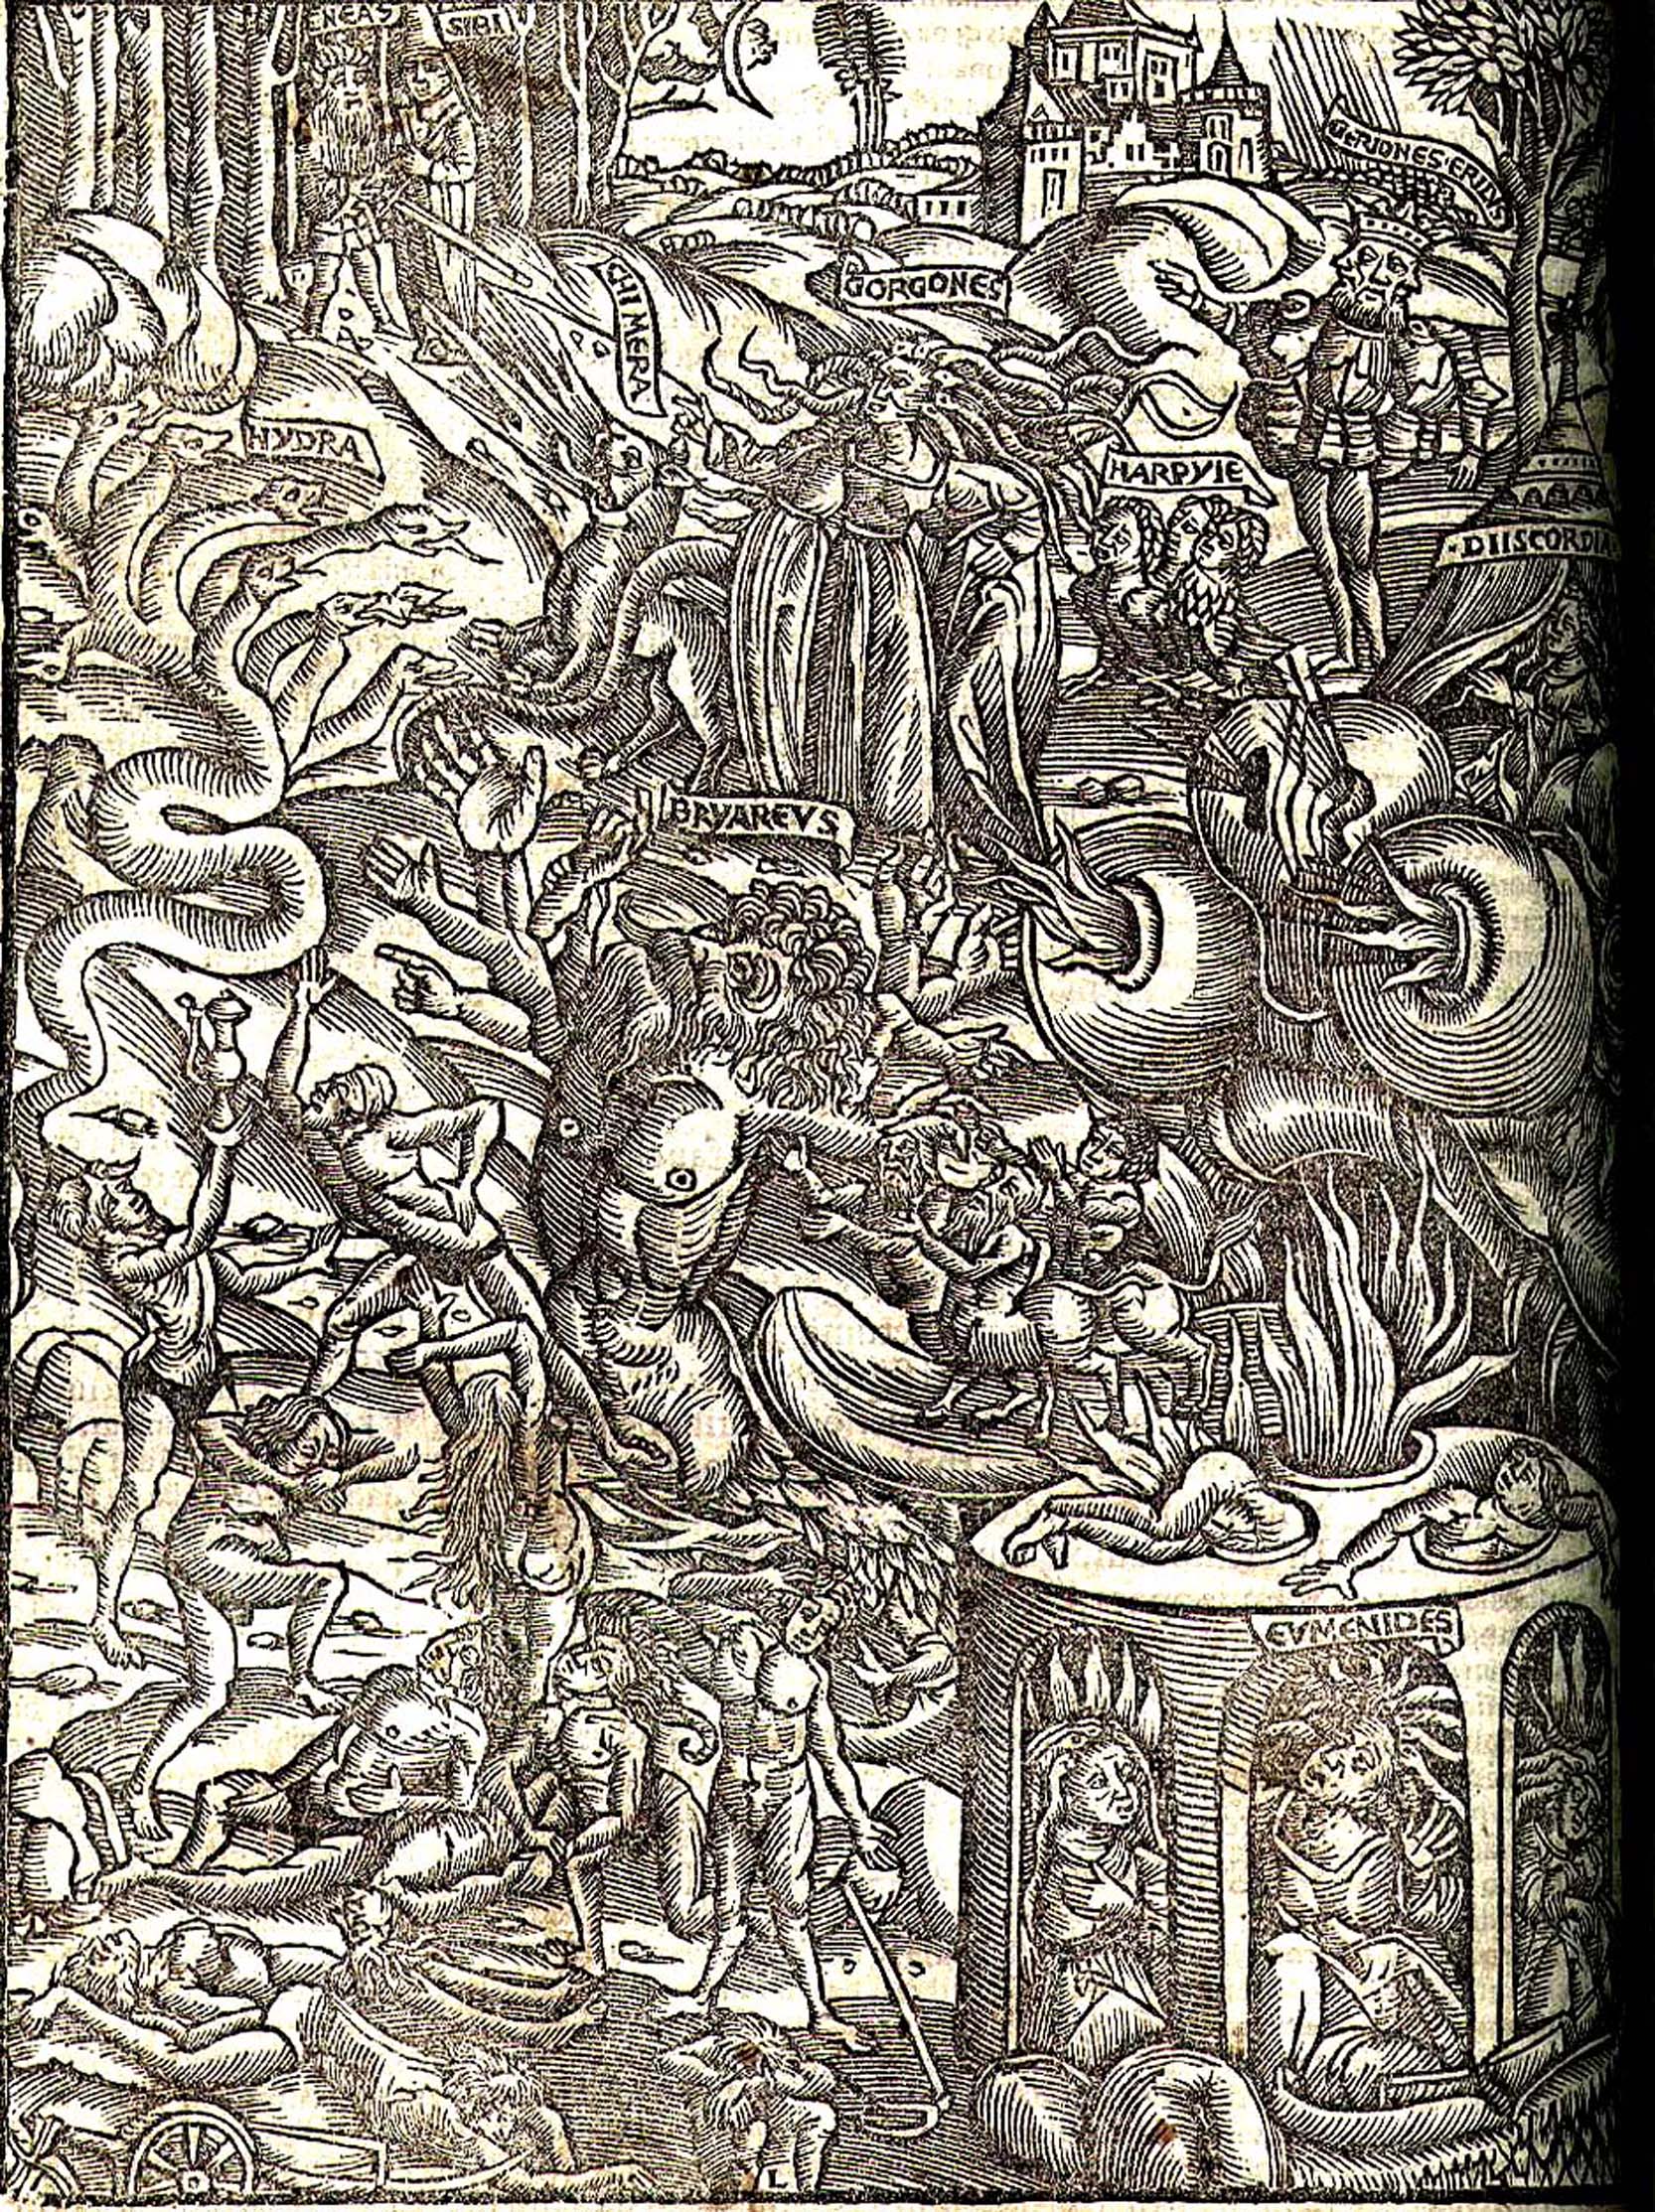 ENEAS
SIBIL
GERIONES·ERILVS
CHIMERA
GORGONES
HYDRA
HARPYIE
·DIISCORDIA
BRYAREVS
EVMENIDES
L